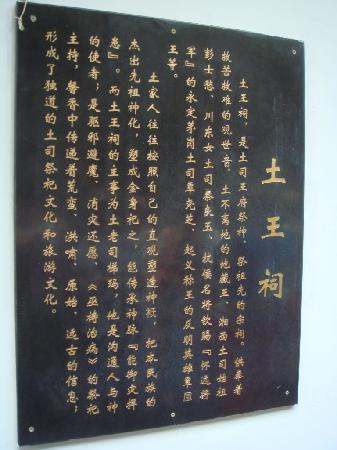 土王祠
土王祠，是土司王府祭神、祭祖先的宗祠。供奉着
救苦救难的观世音、土不离地的地藏王、湘西土司始祖
彭士愁、川东女土司秦良玉、抗倭名将钦赐『怀远将
军』的永定茅岗土司覃尧芝、起义称王的反明英雄覃垕
王等。
土家人往往按照自己的直观塑造神祇，把本民族的
杰出先祖神化，塑成金身祀之，能传承神脉『能御灾捍
患』。而土王祠的主事为土老司梯玛，他是沟通人与神
的使者；是驱邪避魔、消灾还愿、《巫祷治病》的祭祀
主持，馨香中传递着荒蛮、洪甫、原始、远古的信息；
形成了独道的土司祭祀文化和旅游文化。